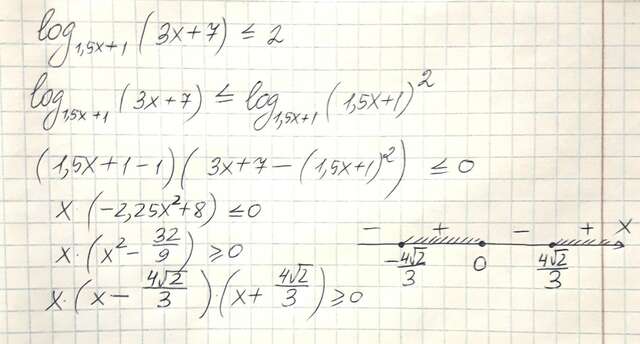 log₁,₅ₓ₊₁ (3x+7) ≤ 2
log₁,₅ₓ₊₁ (3x+7) ≤ log₁,₅ₓ₊₁ (1,5x+1)²
(1,5x+1-1)(3x+7-(1,5x+1)²) ≤ 0
x·(-2,25x²+8) ≤ 0
x·(x² - 32/9) ≥ 0
x·(x - 4√2/3)·(x + 4√2/3) ≥ 0
- + - + x
-4√2/3 0 4√2/3